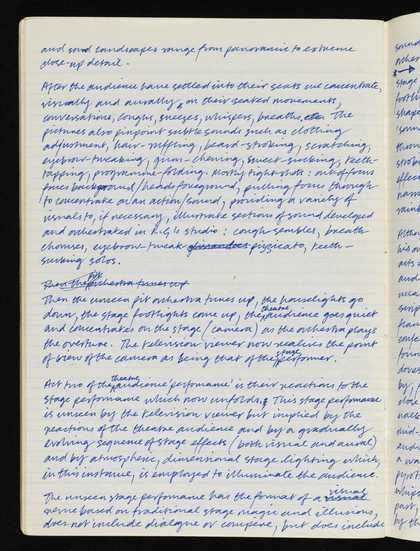 and sound landscapes range from panoramic to extreme
close-up detail.
After the audience have settled into their seats we concentrate,
visually and aurally, on their seated movements,
conversations, coughs, sneezes, whispers, breaths, etc. The
pictures also pinpoint subtle sounds such as clothing
adjustment, hair-ruffling, beard-stroking, scratching,
eyebrow-tweaking, gum-chewing, sweet-sucking, teeth-
tapping, programme-folding. Mostly tight-shots: out-of-focus
faces background/heads foreground, pulling focus through
to concentrate on an action/sound, providing a variety of
visuals to, if necessary, illustrate section of sound developed
and orchestrated in R.G.'s studio: cough ensembles, breath
choruses, eyebrow-tweak pizzicato, teeth-
sucking solos.
Then the pit orchestra tunes up
Then the unseen pit orchestra tunes up, the houselights go
down, the stage footlights come up, the theatre audience goes quiet
and concentrates on the stage (camera) as the orchestra plays
the overture. The television viewer now realises the point
of view of the camera as being that of the stage performer.
Act two of the theatre audience 'performance' is their reactions to the
stage performance which now unfolds. This stage performance
is unseen by the television viewer but implied by the
reactions of the theatre audience and by a gradually
evolving sequence of stage effects (both visual and aural)
and by atmospheric, dimensional stage-lighting which,
in this instance, is employed to illuminate the audience.
The unseen stage performance has the format of a visual
revue based on traditional stage magic and illusions,
does not include dialogue or compere, but does include
sound
other
stage